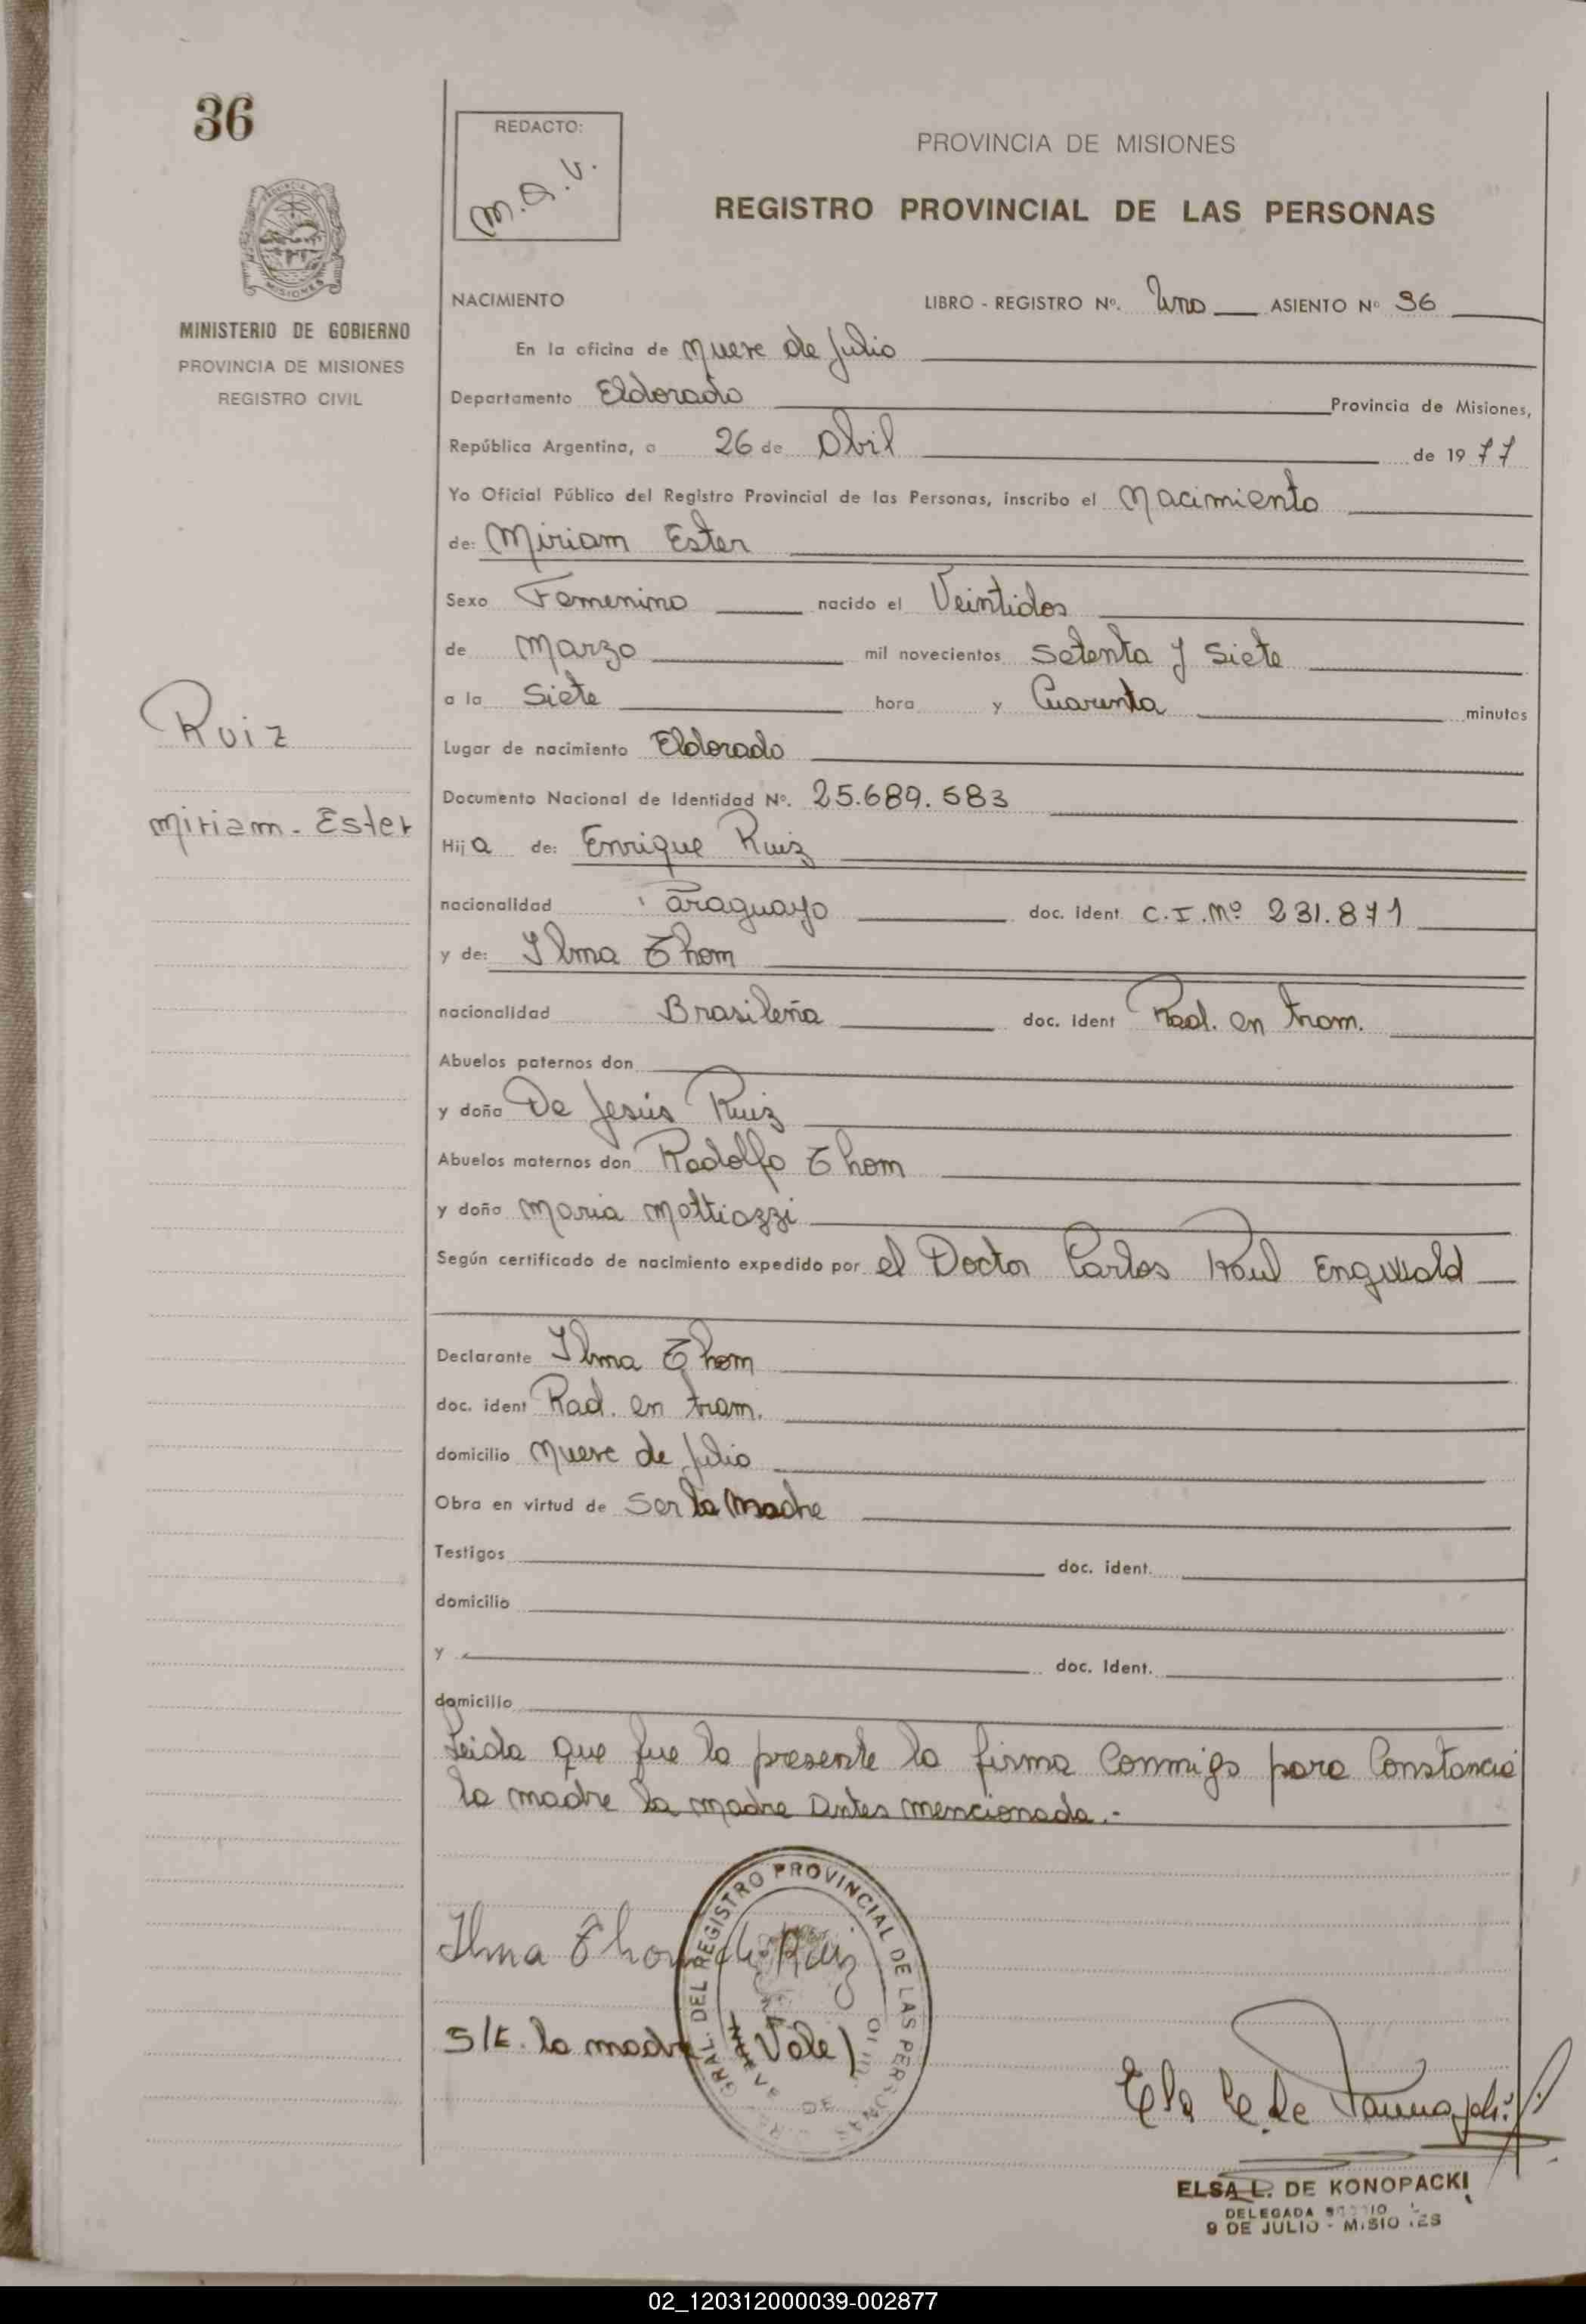 36
REDACTO:
M.A.V.
PROVINCIA DE MISIONES
REGISTRO PROVINCIAL DE LAS PERSONAS
MINISTERIO DE GOBIERNO
PROVINCIA DE MISIONES
REGISTRO CIVIL
Ruiz
Miriam - Ester
NACIMIENTO LIBRO - REGISTRO Nº. Uno ASIENTO Nº 36
En la oficina de Nueve de Julio
Departamento Eldorado Provincia de Misiones,
República Argentina, a 26 de Abril de 1977
Yo Oficial Público del Registro Provincial de las Personas, inscribo el Nacimiento
de: Miriam Ester
Sexo Femenino nacido el Veintidos
de Marzo mil novecientos Setenta y Siete
a la Siete hora y Cuarenta minutos
Lugar de nacimiento Eldorado
Documento Nacional de Identidad Nº. 25.689.583
Hija de: Enrique Ruiz
nacionalidad Paraguayo doc. ident. C.I. Nº 231.871
y de: Ilma Thom
nacionalidad Brasileña doc. ident Rad. en tram.
Abuelos paternos don
y doña De Jesús Ruiz
Abuelos maternos don Rodolfo Thom
y doña Maria Mattiazzi
Según certificado de nacimiento expedido por el Doctor Carlos Raul Engwald
Declarante Ilma Thom
doc. ident Rad. en tram.
domicilio Nueve de Julio
Obra en virtud de Ser la Madre
Testigos doc. ident.
domicilio
y doc. ident.
domicilio
Leida que fue la presente la firma Conmigo para Constancia
la madre la madre antes mencionada.-
Ilma Thom de Ruiz
S/E. la madre (Vale)
GRAL. DEL REGISTRO PROVINCIAL DE LAS PERSONAS
ELSA L. DE KONOPACKI
DELEGADA
9 DE JULIO - MISIONES
02_120312000039-002877